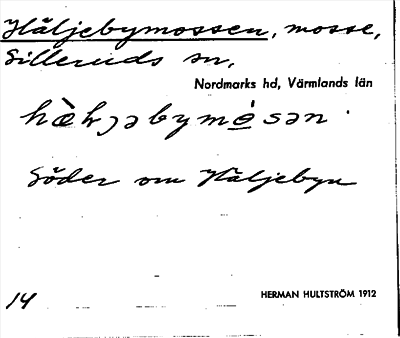 Häljebymossen, mosse,
Silleruds sn,
Nordmarks hd, Värmlands län
Söder om Häljebyn
14
HERMAN HULTSTRÖM 1912